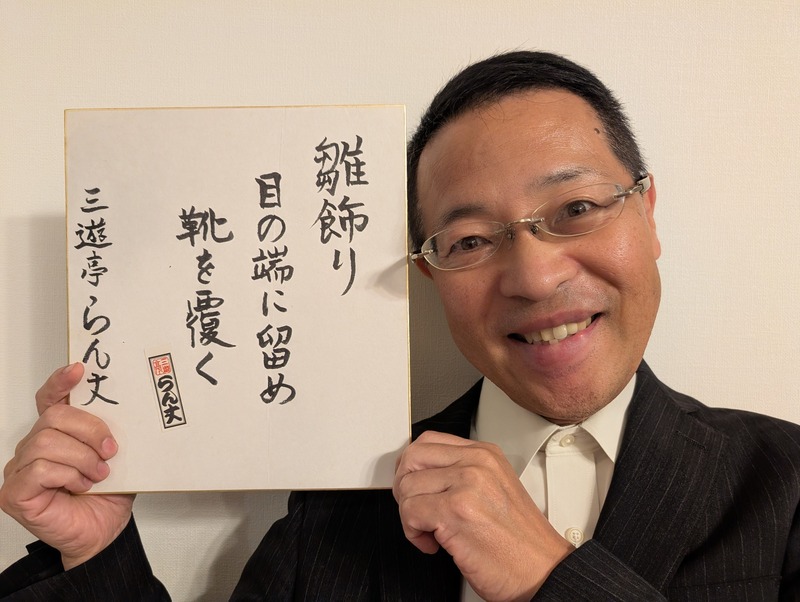 雛飾り
目の端に留め
靴を覆く
三遊亭らん丈
らん丈